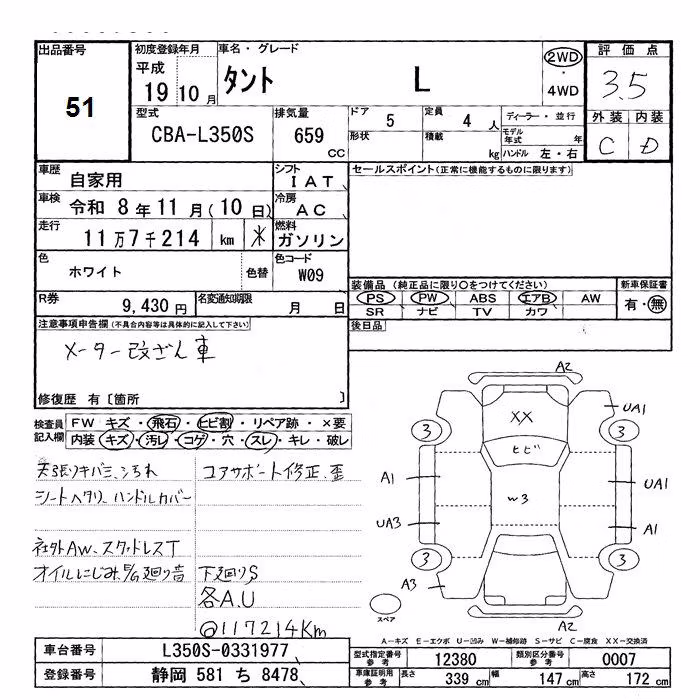 出品番号 51
初度登録年月 平成 19 10 月
車名・グレード タント L
2WD ・ 4WD
評価点 3.5
外装 内装
C D
型式 CBA-L350S
排気量 659 CC
ドア 5
定員 4 人
形状
積載 kg
ディーラー・並行
モデル年式 年
ハンドル 左・右
車歴 自家用
シフト IAT
車検 令和 8年 11月(10日)
冷房 AC
走行 11万7千214 km ✳
燃料 ガソリン
色 ホワイト 色替
色コード W09
R券 9,430円
名変通知期限 月 日
セールスポイント(正常に機能するものに限ります)
装備品 (純正品に限り○をつけてください)
PS PW ABS エアB AW
SR ナビ TV カワ
新車保証書 有・無
後日品
注意事項申告欄(不具合内容等は具体的に記入して下さい)
メーター改ざん車
修復歴 有〔箇所 〕
検査員記入欄
FW キズ・飛石・ヒビ割・リペア跡・×要
内装・キズ・汚レ・コゲ・穴・スレ・キレ・破レ
天張りキバミ、シミ汚れ
シートヘタリ、ハンドルカバー
社外AW、スタッドレスT
オイルにじみ、E/G廻り音
コアサポート修正、歪
下廻りS
各A.U
@117214Km
A2
XX
UA1
3 3
ヒビ
A1
UA1
W3
UA3
A1
3 3
A3
A2
スペア
A-キズ E-エクボ U-凹み W-補修跡 S-サビ C-腐食 XX-交換済
車台番号 L350S-0331977
登録番号 静岡 581 ち 8478
型式指定番号 参考 12380
類別区分番号 参考 0007
車庫証明用 参考 長さ 339 cm 幅 147 cm 高さ 172 cm